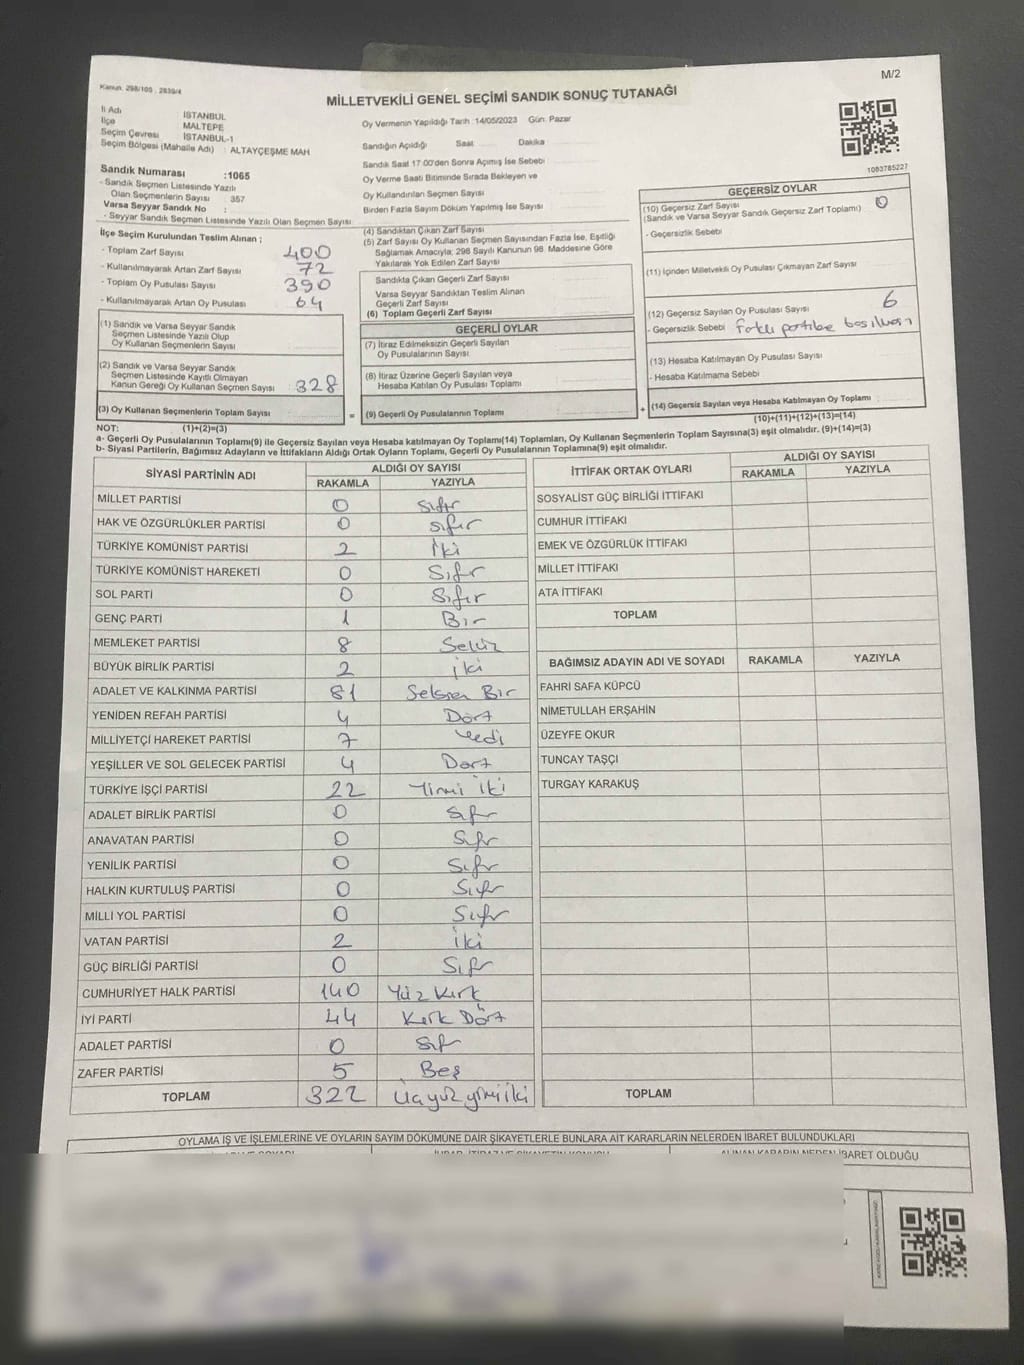 M/2
Kanun: 298/105 , 2839/4
MİLLETVEKİLİ GENEL SEÇİMİ SANDIK SONUÇ TUTANAĞI
İl Adı İSTANBUL
İlçe MALTEPE
Seçim Çevresi İSTANBUL-1
Seçim Bölgesi (Mahalle Adı) : ALTAYÇEŞME MAH
Sandık Numarası :1065
- Sandık Seçmen Listesinde Yazılı
Olan Seçmenlerin Sayısı : 357
Varsa Seyyar Sandık No :
- Seyyar Sandık Seçmen Listesinde Yazılı Olan Seçmen Sayısı:
Oy Vermenin Yapıldığı Tarih :14/05/2023 Gün: Pazar
Sandığın Açıldığı Saat Dakika
Sandık Saat 17:00'den Sonra Açılmış İse Sebebi
Oy Verme Saati Bitiminde Sırada Bekleyen ve
Oy Kullandırılan Seçmen Sayısı
Birden Fazla Sayım Döküm Yapılmış İse Sayısı
1083785227
İlçe Seçim Kurulundan Teslim Alınan ;
- Toplam Zarf Sayısı 400
- Kullanılmayarak Artan Zarf Sayısı 72
- Toplam Oy Pusulası Sayısı 390
- Kullanılmayarak Artan Oy Pusulası 64
(1) Sandık ve Varsa Seyyar Sandık
Seçmen Listesinde Yazılı Olup
Oy Kullanan Seçmenlerin Sayısı
(2) Sandık ve Varsa Seyyar Sandık
Seçmen Listesinde Kayıtlı Olmayan
Kanun Gereği Oy Kullanan Seçmen Sayısı 328
(3) Oy Kullanan Seçmenlerin Toplam Sayısı
(4) Sandıktan Çıkan Zarf Sayısı
(5) Zarf Sayısı Oy Kullanan Seçmen Sayısından Fazla İse, Eşitliği
Sağlamak Amacıyla; 298 Sayılı Kanunun 98. Maddesine Göre
Yakılarak Yok Edilen Zarf Sayısı
Sandıkta Çıkan Geçerli Zarf Sayısı
Varsa Seyyar Sandıktan Teslim Alınan
Geçerli Zarf Sayısı
(6) Toplam Geçerli Zarf Sayısı
GEÇERLİ OYLAR
(7) İtiraz Edilmeksizin Geçerli Sayılan
Oy Pusulalarının Sayısı
(8) İtiraz Üzerine Geçerli Sayılan veya
Hesaba Katılan Oy Pusulası Toplamı
= (9) Geçerli Oy Pusulalarının Toplamı
GEÇERSİZ OYLAR
(10) Geçersiz Zarf Sayısı 0
(Sandık ve Varsa Seyyar Sandık Geçersiz Zarf Toplamı)
- Geçersizlik Sebebi
(11) İçinden Milletvekili Oy Pusulası Çıkmayan Zarf Sayısı
(12) Geçersiz Sayılan Oy Pusulası Sayısı 6
- Geçersizlik Sebebi Farklı partilere basılması
(13) Hesaba Katılmayan Oy Pusulası Sayısı
- Hesaba Katılmama Sebebi
+ (14) Geçersiz Sayılan veya Hesaba Katılmayan Oy Toplamı
NOT: (1)+(2)=(3)
(10)+(11)+(12)+(13)=(14)
a- Geçerli Oy Pusulalarının Toplamı(9) ile Geçersiz Sayılan veya Hesaba katılmayan Oy Toplamı(14) Toplamları, Oy Kullanan Seçmenlerin Toplam Sayısına(3) eşit olmalıdır. (9)+(14)=(3)
b- Siyasi Partilerin, Bağımsız Adayların ve İttifakların Aldığı Ortak Oyların Toplamı, Geçerli Oy Pusulalarının Toplamına(9) eşit olmalıdır.
SİYASİ PARTİNİN ADI ALDIĞI OY SAYISI
RAKAMLA YAZIYLA
MİLLET PARTİSİ 0 Sıfır
HAK VE ÖZGÜRLÜKLER PARTİSİ 0 sıfır
TÜRKİYE KOMÜNİST PARTİSİ 2 İki
TÜRKİYE KOMÜNİST HAREKETİ 0 Sıfır
SOL PARTİ 0 Sıfır
GENÇ PARTİ 1 Bir
MEMLEKET PARTİSİ 8 Sekiz
BÜYÜK BİRLİK PARTİSİ 2 iki
ADALET VE KALKINMA PARTİSİ 81 Seksen Bir
YENİDEN REFAH PARTİSİ 4 Dört
MİLLİYETÇİ HAREKET PARTİSİ 7 Yedi
YEŞİLLER VE SOL GELECEK PARTİSİ 4 Dört
TÜRKİYE İŞÇİ PARTİSİ 22 Yirmi İki
ADALET BİRLİK PARTİSİ 0 Sıfır
ANAVATAN PARTİSİ 0 Sıfır
YENİLİK PARTİSİ 0 Sıfır
HALKIN KURTULUŞ PARTİSİ 0 Sıfır
MİLLİ YOL PARTİSİ 0 Sıfır
VATAN PARTİSİ 2 İki
GÜÇ BİRLİĞİ PARTİSİ 0 Sıfır
CUMHURİYET HALK PARTİSİ 140 Yüz Kırk
İYİ PARTİ 44 Kırk Dört
ADALET PARTİSİ 0 Sıfır
ZAFER PARTİSİ 5 Beş
TOPLAM 322 Üçyüz yirmi iki
İTTİFAK ORTAK OYLARI ALDIĞI OY SAYISI
RAKAMLA YAZIYLA
SOSYALİST GÜÇ BİRLİĞİ İTTİFAKI
CUMHUR İTTİFAKI
EMEK VE ÖZGÜRLÜK İTTİFAKI
MİLLET İTTİFAKI
ATA İTTİFAKI
TOPLAM
BAĞIMSIZ ADAYIN ADI VE SOYADI RAKAMLA YAZIYLA
FAHRİ SAFA KÜPCÜ
NİMETULLAH ERŞAHİN
ÜZEYFE OKUR
TUNCAY TAŞÇI
TURGAY KARAKUŞ
TOPLAM
OYLAMA İŞ VE İŞLEMLERİNE VE OYLARIN SAYIM DÖKÜMÜNE DAİR ŞİKAYETLERLE BUNLARA AİT KARARLARIN NELERDEN İBARET BULUNDUKLARI
ALINAN KARARIN NEDEN İBARET OLDUĞU